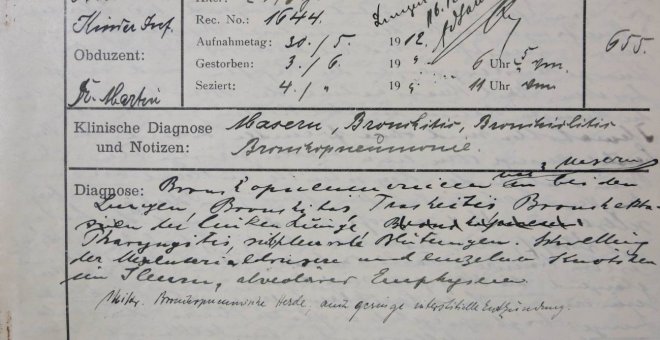 Kinder Inf.
Obduzent:
Dr. Martin
Rec. No.: 1644
Aufnahmetag: 30./5. 1912.
Gestorben: 3./6. 19 " 6 Uhr 5 vm.
Seziert: 4./ " 19 " 11 Uhr vm
655.
Klinische Diagnose Masern, Bronchitis, Bronchiolitis
und Notizen: Bronchopneumonie.
Masern
Diagnose: Bronchopneumonieen in beiden
Lungen Bronchitis Tracheitis Bronchekta-
sien der linken Lunge
Pharyngitis, subpleurale Blutungen. Schwellung
der Mesenterialdrüsen und einzelner Knötchen
im Ileum, alveoläres Emphysem.
Mikr. Bronchopneumonische Herde, auch geringe interstitielle Entzündung.